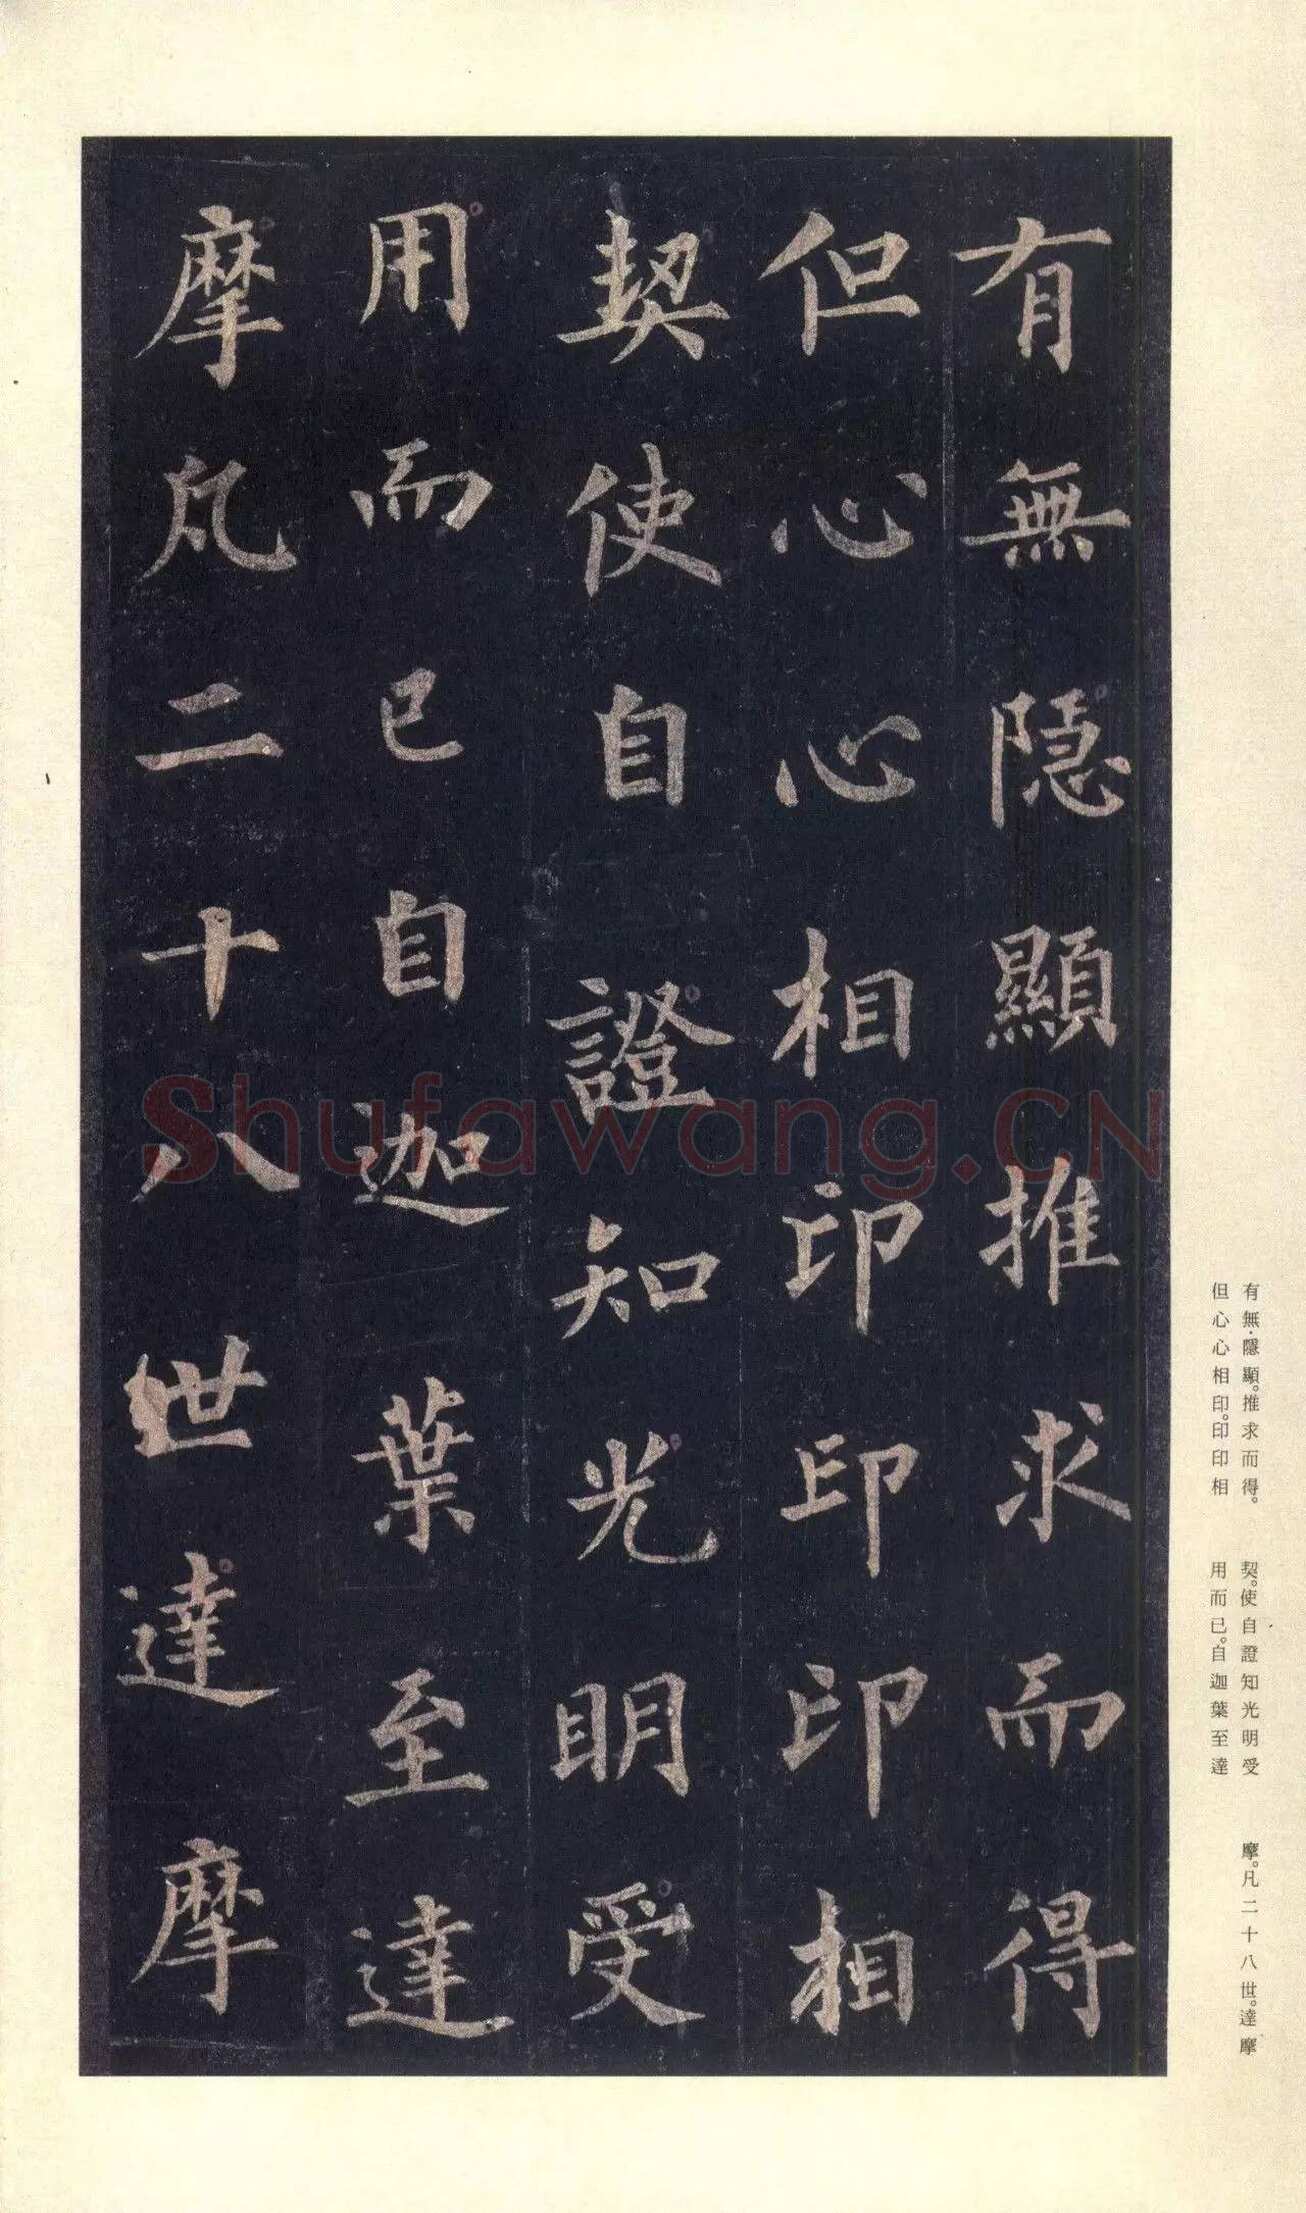 有無隱顯推求而得
但心心相印印印相
契使自證知光明受
用而已自迦葉至達
摩凡二十八世達摩
Shufawang.CN
有無·隱顯。推求而得。
但心心相印。印印相
契。使自證知光明受
用而已。自迦葉至達
摩。凡二十八世。達摩